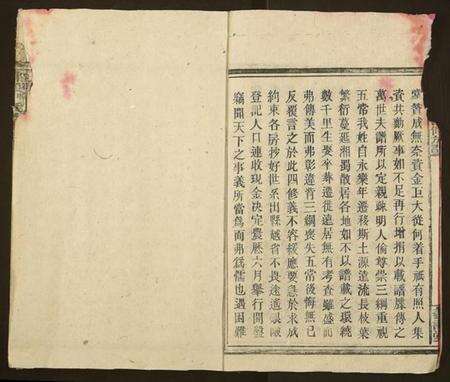 贊成無奈資金巨大從何着手祇有照人集
資共勷厥事如不足再行增捐以載譜牒傳之
萬世夫譜所以定親疎明人倫尊崇三綱重視
五常我姓自永樂年遷移斯土源遠流長枝葉
繁衍蔓延湘蜀散居各地如不以譜載之環繞
數千里生娶卒葬遷徙遠居無有考查雖盛而
弗傳美而弗彰違背三綱喪失五常後悔無已
反覆言之於此四修義不容緩應要急於求成
約束各房抄好世系出縣越省不畏途遙
登記人口連收現金決定農歷六月舉行開盤
竊聞天下之事義所當為而弗為儒也遇困難